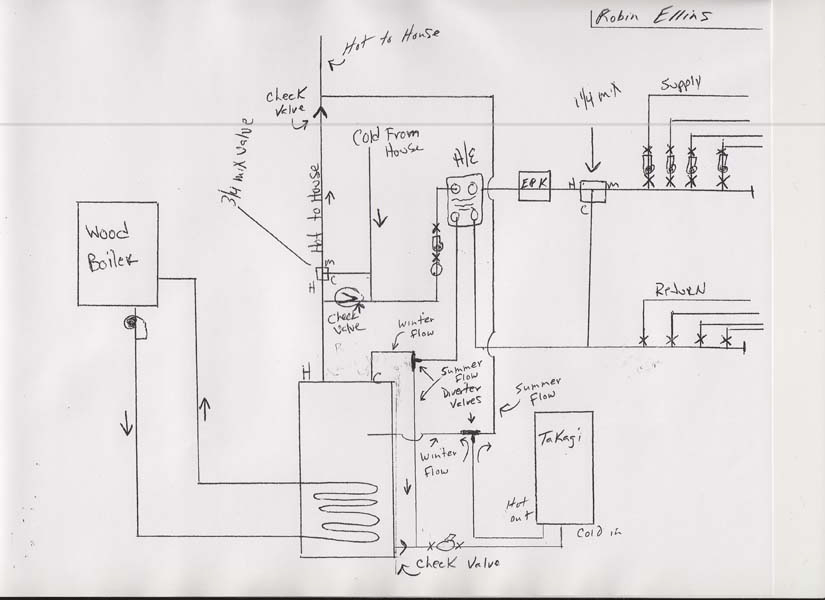 Robin Ellins
Hot to House
Check
Valve
Cold From
House
3/4 mix valve
Hot to House
H/E
EPK
1 1/4 mix
Supply
H
M
C
Wood
Boiler
M
H
C
Check
Valve
Winter
Flow
Return
H
C
Summer
Flow
Diverter
Valves
Summer
Flow
Winter
Flow
Takagi
Hot
out
Cold in
Check Valve